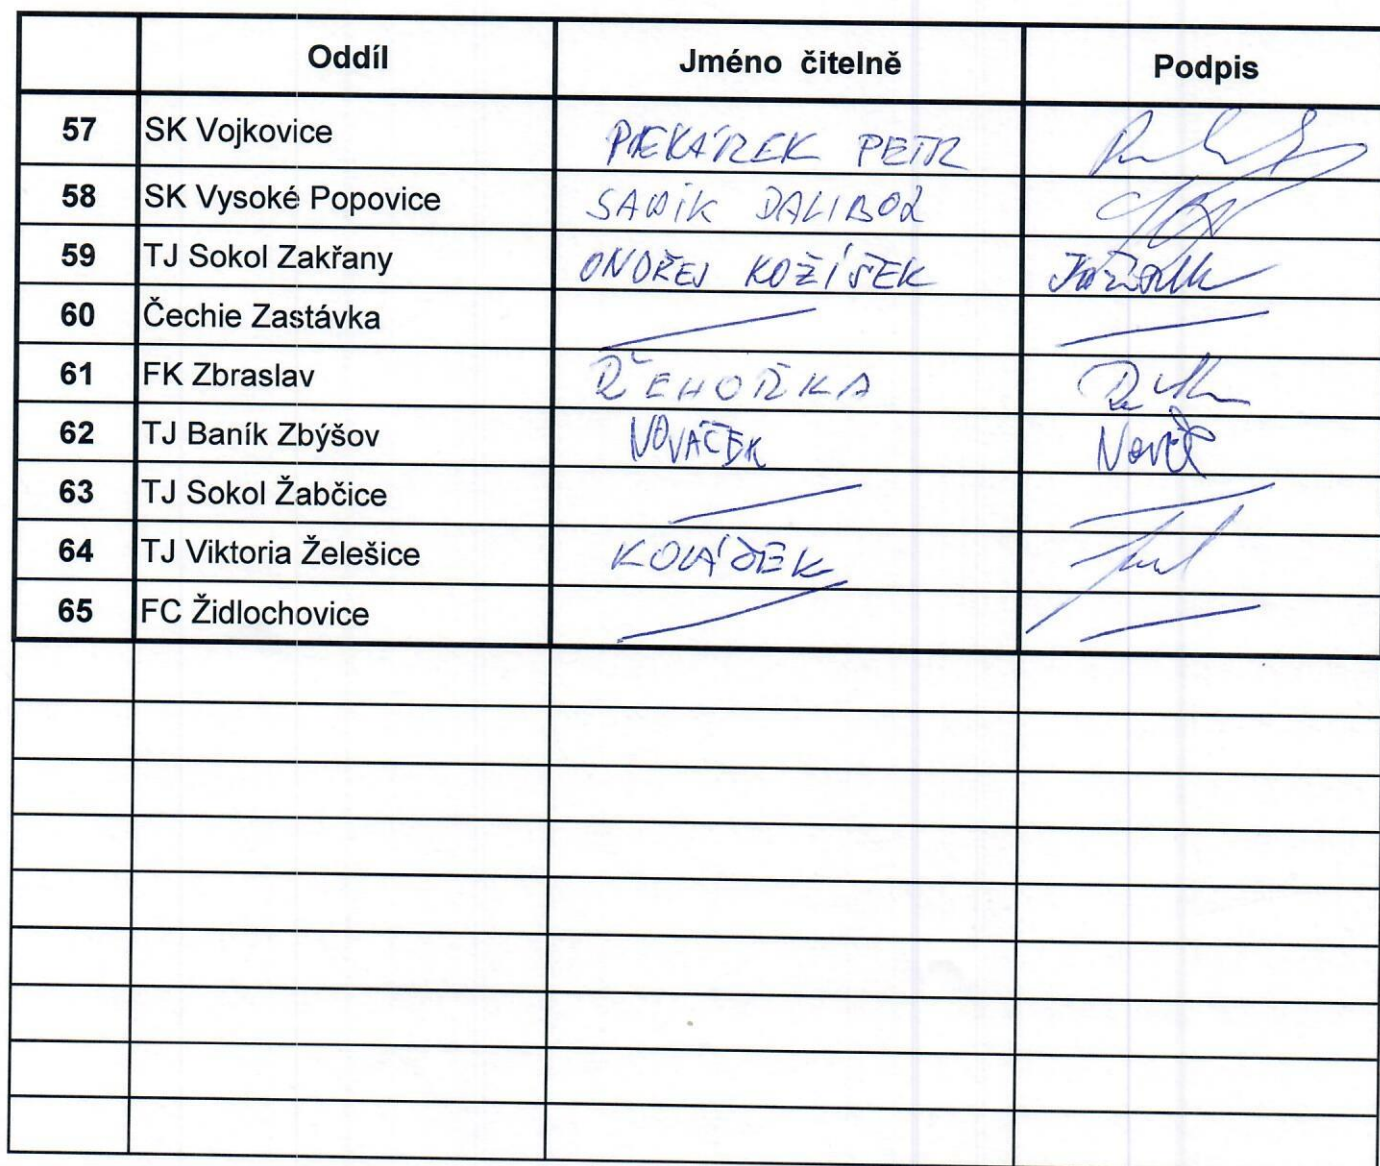 Oddíl Jméno čitelně Podpis
57 SK Vojkovice PEKÁREK PETR
58 SK Vysoké Popovice DALIBOR
59 TJ Sokol Zakřany ONDŘEJ KOŽÍŠEK
60 Čechie Zastávka
61 FK Zbraslav ŘEHOŘKA
62 TJ Baník Zbýšov NOVÁČEK
63 TJ Sokol Žabčice
64 TJ Viktoria Želešice
65 FC Židlochovice